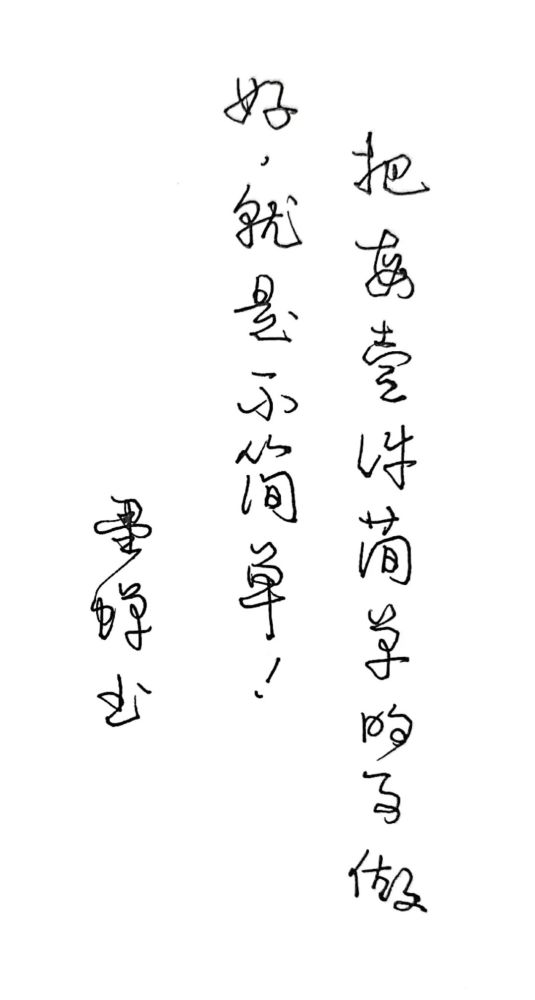 把每壹件简单的事做
好，就是不简单！
墨蝉书